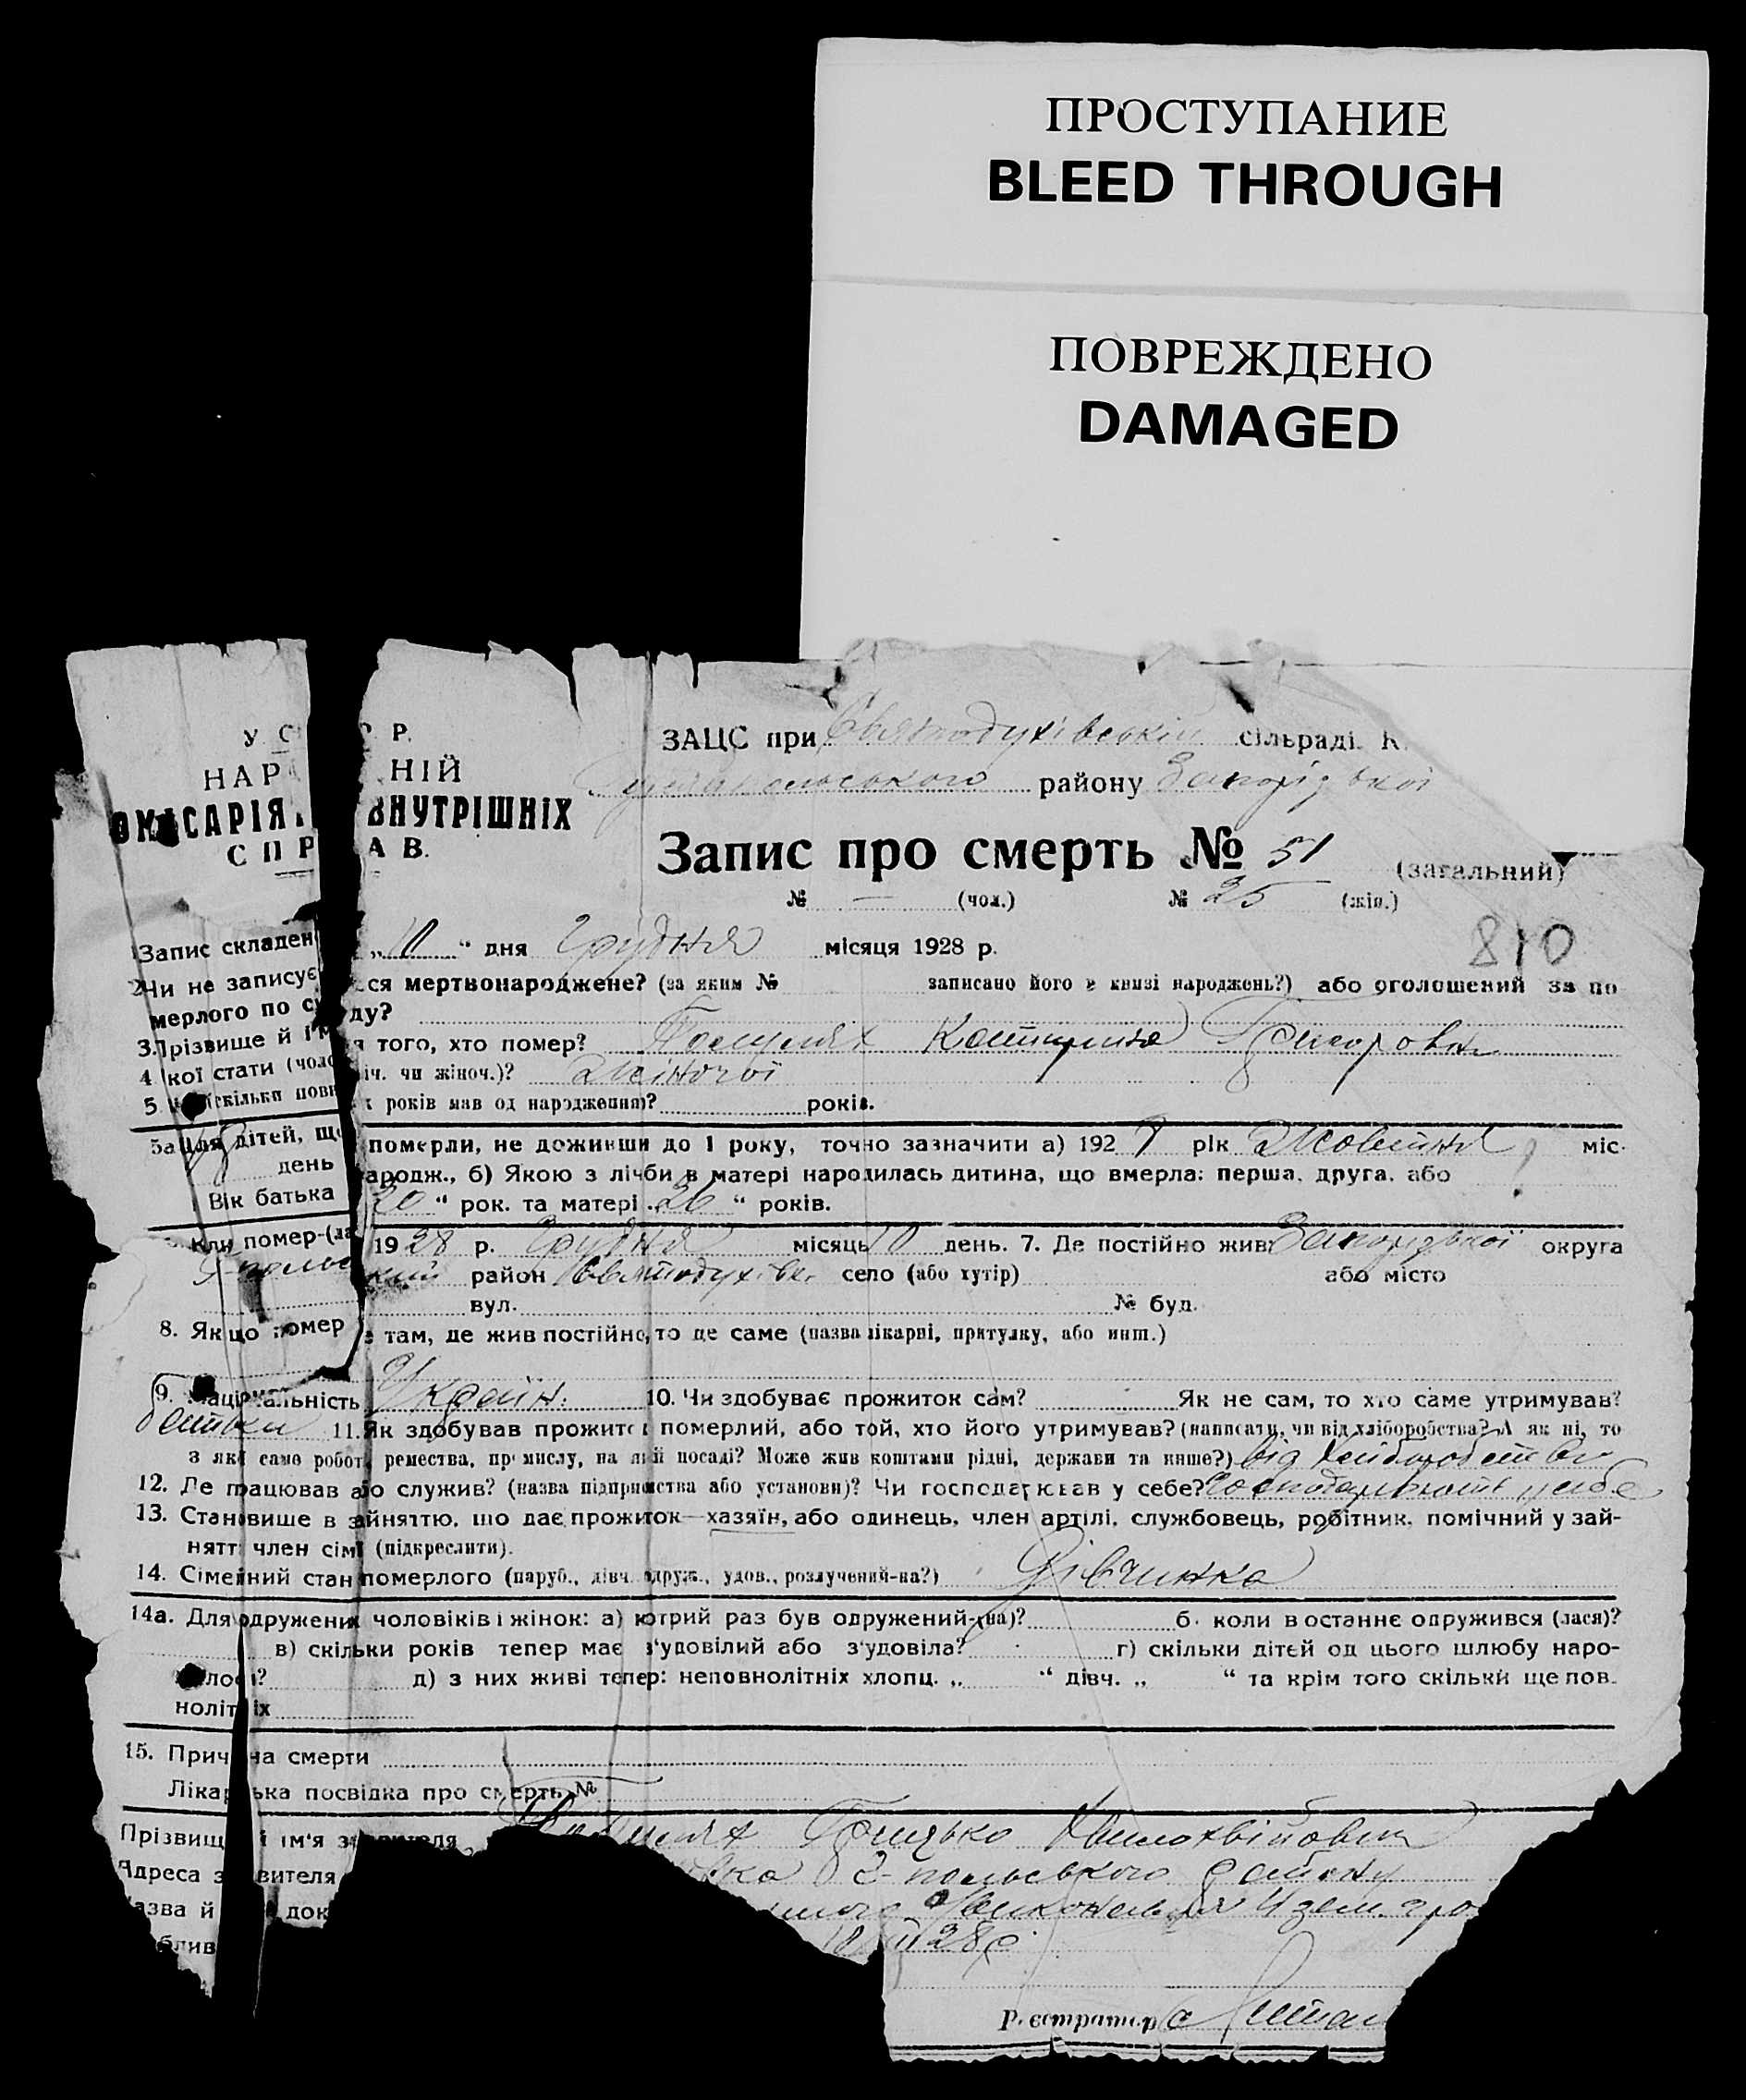 ПРОСТУПАНИЕ
BLEED THROUGH
ПОВРЕЖДЕНО
DAMAGED
У С Р Р.
НАР НІЙ
ОМІСАРІЯ ВНУТРІШНІХ
СПР АВ.
ЗАЦС при Святодухівській сільраді К
району Запорізької
Запис про смерть № 51 (загальний)
№ — (чол.) № 25 (жін.)
810
Запис складен „10“ дня Грудня місяця 1928 р.
2 Чи не записує ся мертвонароджене? (за яким № записано його в книзі народжень?) або оголошений за по
мерлого по су ду?
3. Прізвище й ім я того, хто помер? Катерина
4 кої стати (чоло іч. чи жіноч.)? Жіночої
5 скільки повн х років мав од народження)? років.
5а Для дітей, що померли, не доживши до 1 року, точно зазначити а) 192 рік Жовтня міс.
18 день ародж., б) Якою з лічби в матері народилась дитина, що вмерла: перша, друга, або
Вік батька 20 “ рок. та матері 26 “ років.
Кли помер-(ла 1928 р. Грудня місяць 10 день. 7. Де постійно жив: Запорізької округа
район Святодухівк. село (або хутір) або місто
вул. № буд.
8. Якщо помер е там, де жив постійно, то де саме (назва лікарні, притулку, або инш.)
9. Національність Україн. 10. Чи здобуває прожиток сам? Як не сам, то хто саме утримував?
батьки 11. Як здобував прожиток померлий, або той, хто його утримував? (написати, чи від хліборобства? А як ні, то
з якої саме роботи, ремества, промислу, на якій посаді? Може жив коштами рідні, держави та инше?) від хліборобства
12. Де працював або служив? (назва підприємства або установи)? Чи господарював у себе?
13. Становище в зайняттю, що дає прожиток—хазяїн, або одинець, член артілі, службовець, робітник, помічний у зай-
нятті член сімї (підкреслити).
14. Сімейний стан померлого (паруб., дівч. одруж., удов., розлучений-на?) Дівчинка
14а. Для одружених чоловіків і жінок: а) котрий раз був одружений-(на)? б. коли в останнє одружився (лася)?
в) скільки років тепер має з‘удовілий або з‘удовіла? г) скільки дітей од цього шлюбу наро-
лось? д) з них живі тепер: неповнолітніх хлопц. „ “ дівч. „ “ та крім того скільки ще пов.
нолітніх
15. Причина смерти
Лікарська посвідка про смерть №
Прізвищ й ім‘я з вителя Грицько
Адреса з вителя вка польського району
азва й док
блив 28р.
реєстратор